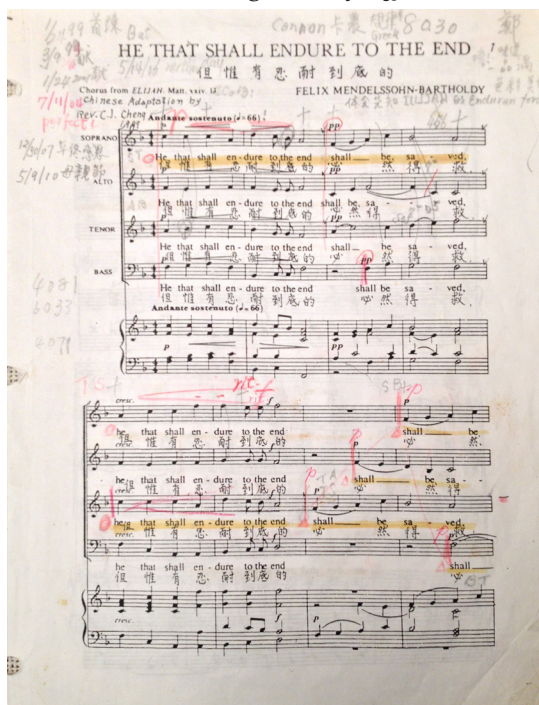 1/6/99 首練 Bat Cannon 卡農 8030 鄭
HE THAT SHALL ENDURE TO THE END
但惟有忍耐到底的
Chorus from ELIJAH. Matt. xxiv. 13
FELIX MENDELSSOHN-BARTHOLDY
Chinese Adaptation by
Rev. C.J. Cheng
7/11/04
Andante sostenuto (♩=66)
pp
SOPRANO
He that shall en - dure to the end shall be sa - ved,
但 惟 有 忍 耐 到 底 的 必 然 得 救
5/9/10 母親節
ALTO
He that shall en - dure to the end shall be, sa - ved,
但 惟 有 忍 耐 到 底 的 必 然 得 救
TENOR
He that shall en - dure to the end shall be sa - ved,
但 惟 有 忍 耐 到 底 的 必 然 得 救
BASS
He that shall en - dure to the end shall be sa - ved,
但 惟 有 忍 耐 到 底 的 必 然 得 救
4081
6033
4071
Andante sostenuto (♩=66)
p pp
T.S. rit. S B
cresc. f p
he that shall en - dure to the end shall be
但 惟 有 忍 耐 到 底 的 必 然
f p
he that shall en - dure to the end shall be sa -
但 惟 有 忍 耐 到 底 的 必 然 得
cresc. f p
he that shall en - dure to the end shall be sa - ved,
但 惟 有 忍 耐 到 底 的 必 然 得 救
cresc. f p
he that shall en - dure to the end shall
但 惟 有 忍 耐 到 底 的 必
cresc. f p